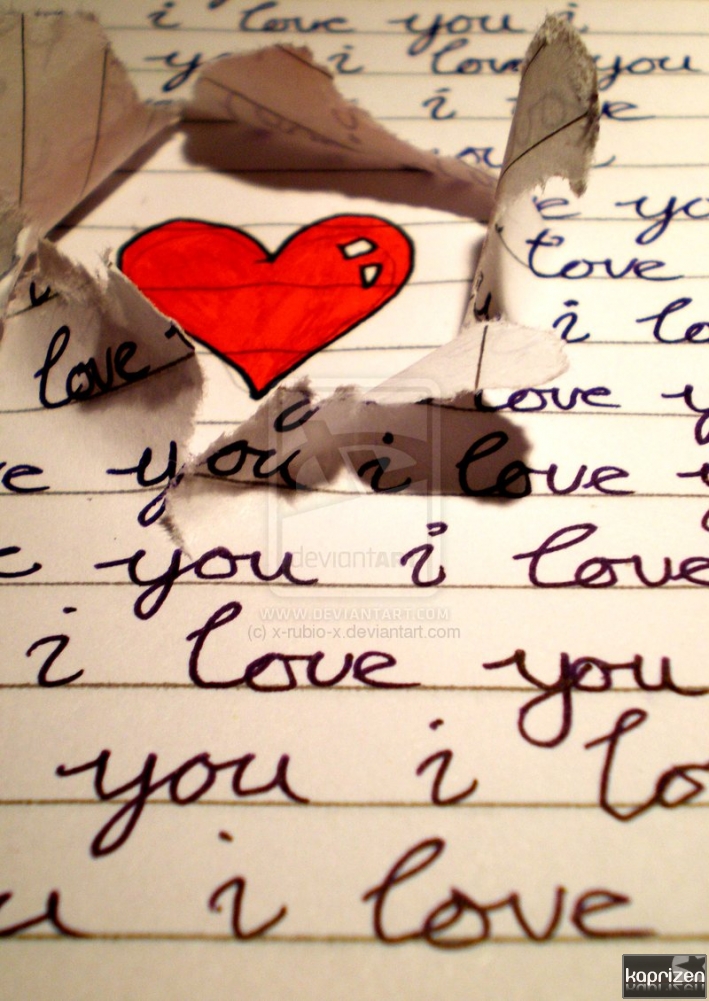 i love you i
i love you
i
love
i lo
love
you i love
you i love
i love you
you i lo
i love
deviantART
WWW.DEVIANTART.COM
(c) x-rubio-x.deviantart.com
kaprizen